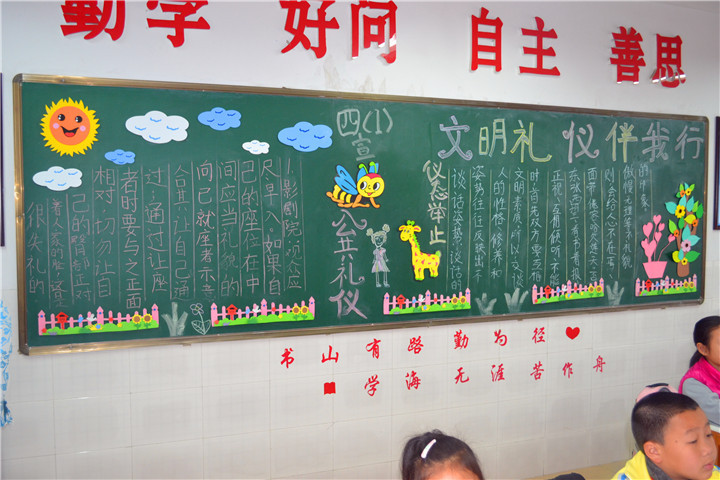 勤学 好问 自主 善思
四(1)宣
文明礼仪伴我行
公共礼仪
1影剧院:观众应
尽早入。如果自
己的座应在中
间应当礼貌的
向已就座者示
合其让自己通
过。通过让座
者时要与之正面
相对,切勿让自
己的臀部正对
着人家的脸,这是
很失礼的
仪态举止
谈话姿势:谈话的
姿势往往反映出
人的性格、修养和
文明素质。所以交谈
时首先双方要互相
正视,互相倾听,不能
东张西望,看书看报
面带倦容哈欠连天,否
则会给人心不在焉
傲慢无理等不礼貌
的印象。
书山有路勤为径
学海无涯苦作舟